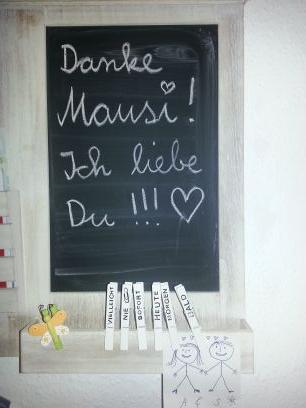 Danke
Mausi!
Ich liebe
Du!!! ♡
VIELLEICHT
NIE
SOFORT
HEUTE
MORGEN
BALD